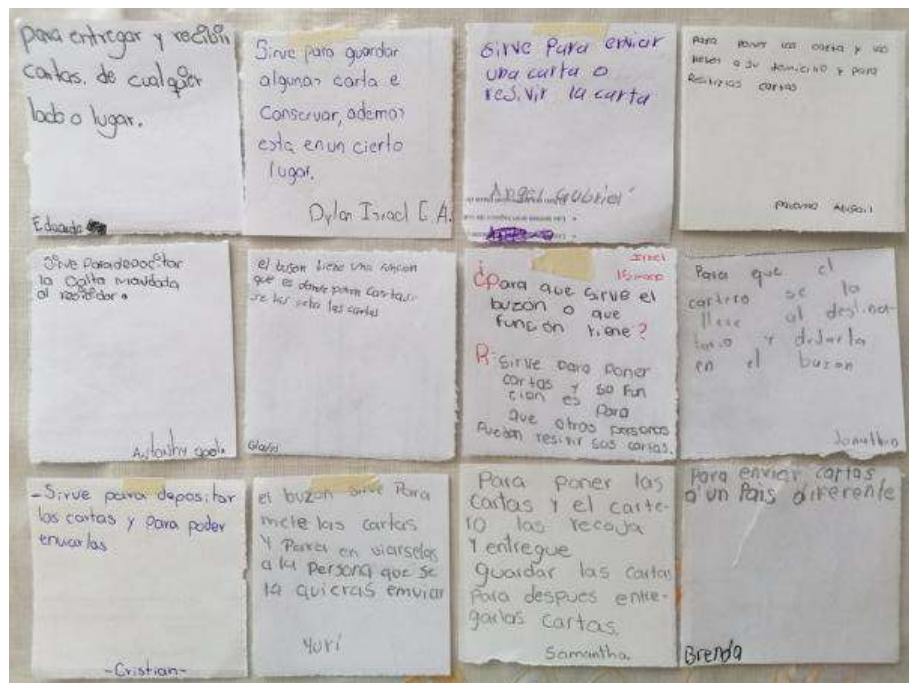 para entregar y recibir
cartas, de cualquier
lado o lugar.
Eduardo
Sirve para guardar
algunas carta e
Conservar, ademas
esta en un cierto
lugar.
Dylan Israel C. A.
Sirve Para enviar
una carta o
resivir la carta
Angel Gabriel
Para poner las carta y
a su domicilio y para
cartas
Sirve para
la mandada
al
Anthony
el buson tiene una funcion
que es donde ponen cartas
las cartas
¿Para que sirve el
buzón o que
función tiene?
R= Sirve para poner
cartas y so fun
cion es Para
que otras personas
Puedan resivir sus cartas.
Para que el
cartero se la
lleve al destina-
tario y dejarla
en el buzon
Jonathan
-Sirve para depositar
las cartas y para poder
enviarlas
-Cristian-
el buzon sirve Para
mete las cartas
Y Para en viarselas
a la Persona que se
la quieras enviar
Yuri
Para poner las
Cartas y el carte-
ro las recoja
Y entregue
guardar las cartas
Para despues entre-
garlas Cartas.
Samantha.
Para enviar cartas
a un Pais diferente
Brenda